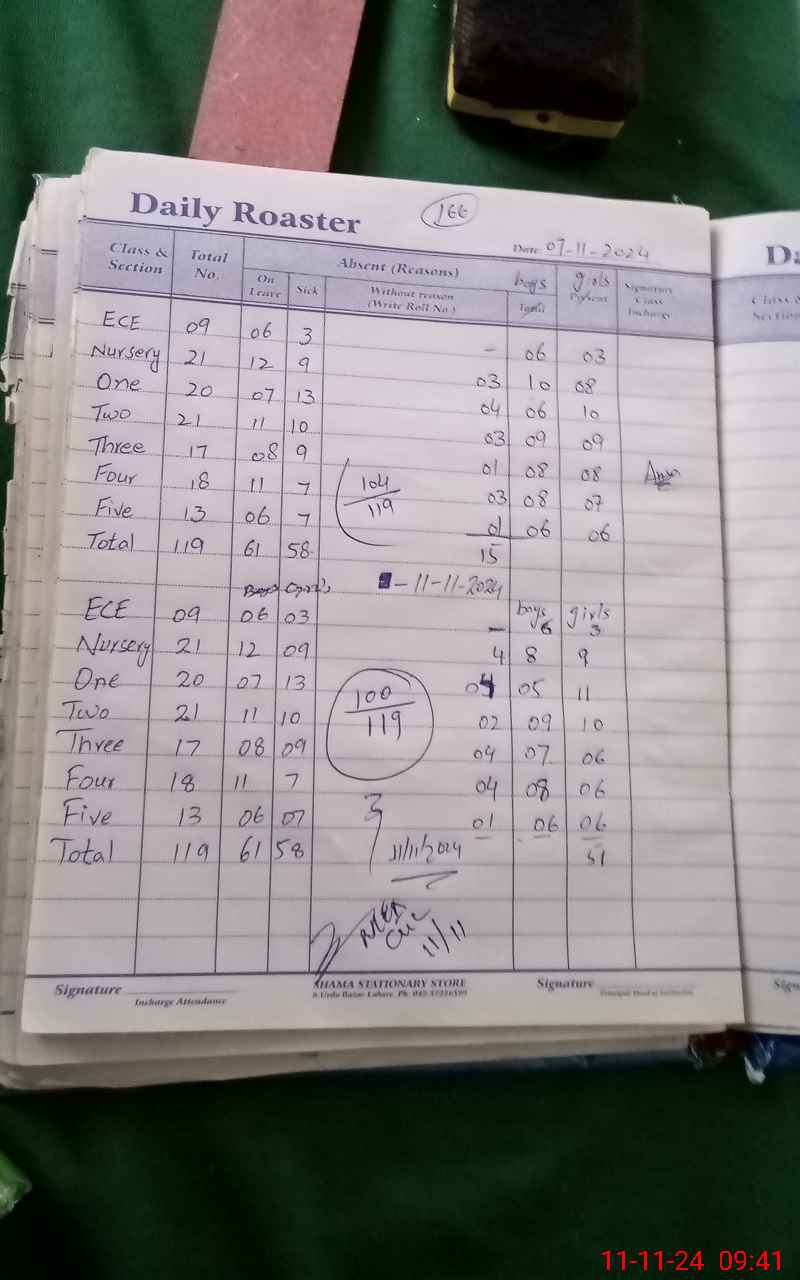 166
Daily Roaster
Date 07-11-2024
Class & Section Total No. Absent (Reasons) boys girls Signature Class Incharge
On Leave Sick Without reason (Write Roll No.) Total Present
ECE 09 06 3 - 06 03
Nursery 21 12 9 03 10 08
One 20 07 13 04 06 10
Two 21 11 10 03 09 09
Three 17 08 9 01 08 08
Four 18 11 7 03 08 07
Five 13 06 7 01 06 06
Total 119 61 58 15
104
119
Boys Girls - 11-11-2024
boys girls
ECE 09 06 03 - 6 3
Nursery 21 12 09 4 8 9
One 20 07 13 04 05 11
Two 21 11 10 02 09 10
Three 17 08 09 04 07 06
Four 18 11 7 04 08 06
Five 13 06 07 01 06 06
Total 119 61 58 51
100
119
11/11/2024
11/11
Signature
Incharge Attendance
SHAMA STATIONARY STORE
6 Urdu Bazar Lahore.
Signature
Da
Class &
Section
Sign
11-11-24 09:41